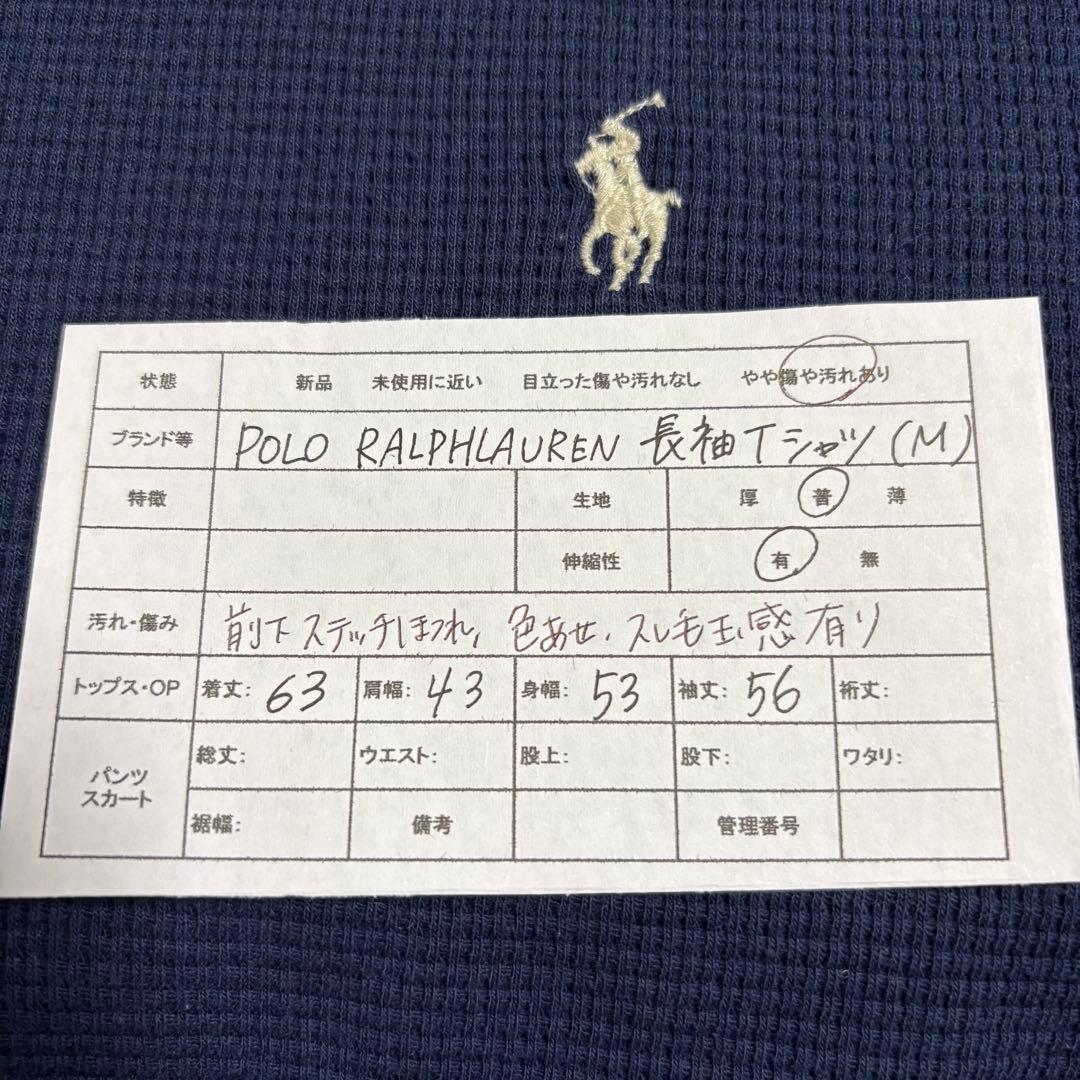 状態 新品 未使用に近い 目立った傷や汚れなし やや傷や汚れあり
ブランド等 POLO RALPHLAUREN 長袖Tシャツ(M)
特徴 生地 厚 普 薄
伸縮性 有 無
汚れ・傷み 前下ステッチほつれ, 色あせ、スレ毛玉感有り
トップス・OP 着丈: 63 肩幅: 43 身幅: 53 袖丈: 56 裄丈:
パンツ スカート 総丈: ウエスト: 股上: 股下: ワタリ:
裾幅: 備考 管理番号